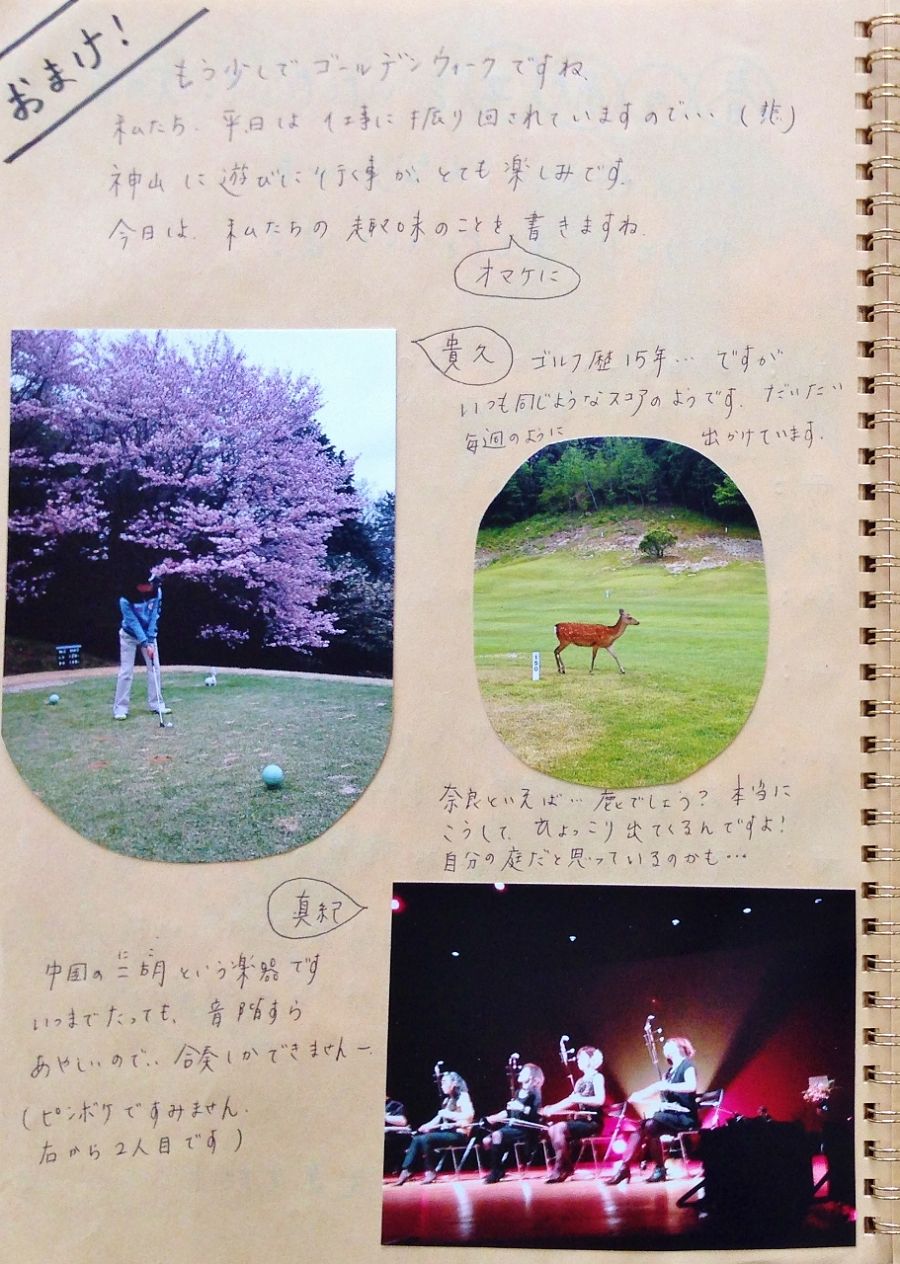 おまけ!
もう少しでゴールデンウィークですね、
私たち、平日は仕事に振り回されていますので… (悲)
神山に遊びに行く事が、とても楽しみです。
今日は、私たちの趣味のことを書きますね。
オマケに
貴久
ゴルフ歴15年… ですが
いつも同じようなスコアのようです。だいたい
毎週のように 出かけています。
150
奈良といえば… 鹿でしょう? 本当に
こうして、ひょっこり出てくるんですよ!
自分の庭だと思っているのかも…
真紀
中国の二胡という楽器です
にこ
いつまでたっても、音階すら
あやしいので、合奏しかできませんー。
(ピンボケですみません。
右から2人目です)